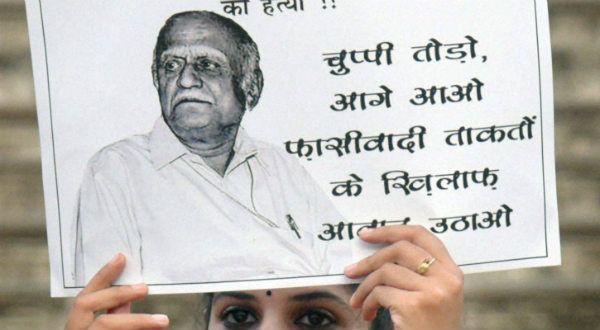 की हत्या !!
चुप्पी तोड़ो,
आगे आओ
फ़ासीवादी ताकतों
के ख़िलाफ़
आवाज़ उठाओ